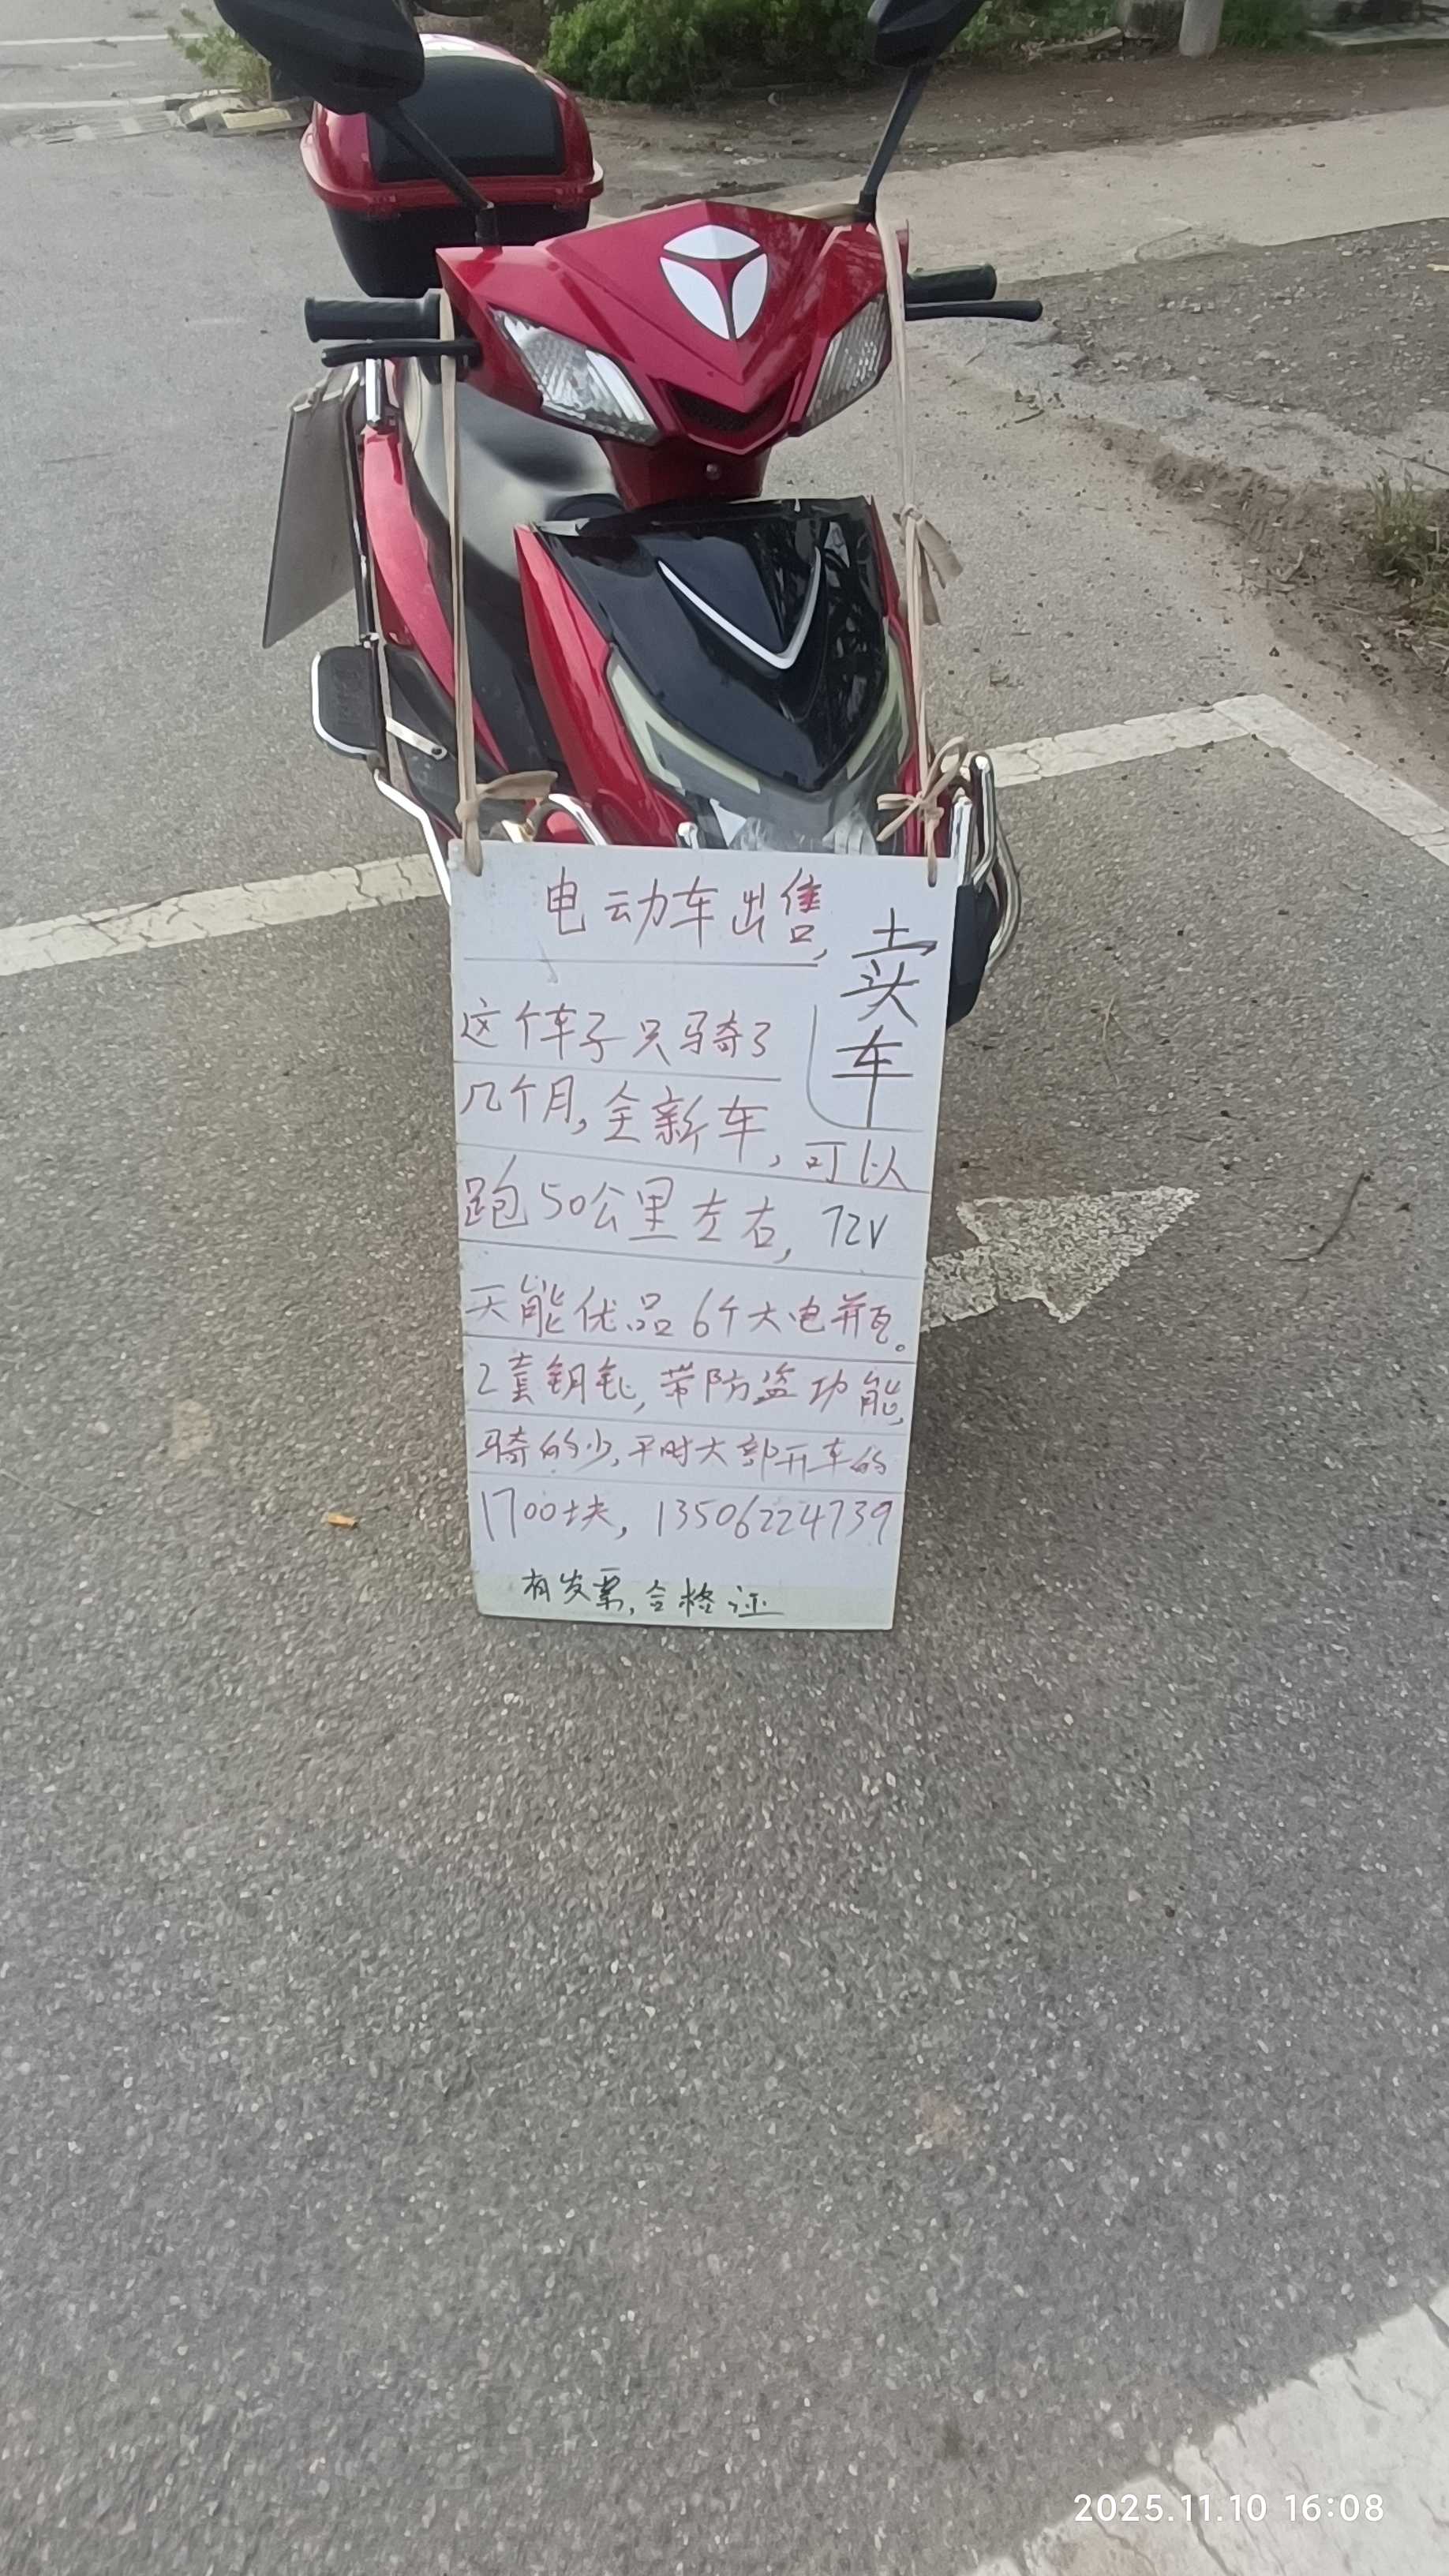 电动车出售,
卖车
这个车子只骑了
几个月,全新车,可以
跑50公里左右,72V
天能优品6个大电瓶。
2套钥匙,带防盗功能,
骑的少,平时大部开车的
1700块,13506224739
有发票,合格证
2025.11.10 16:08